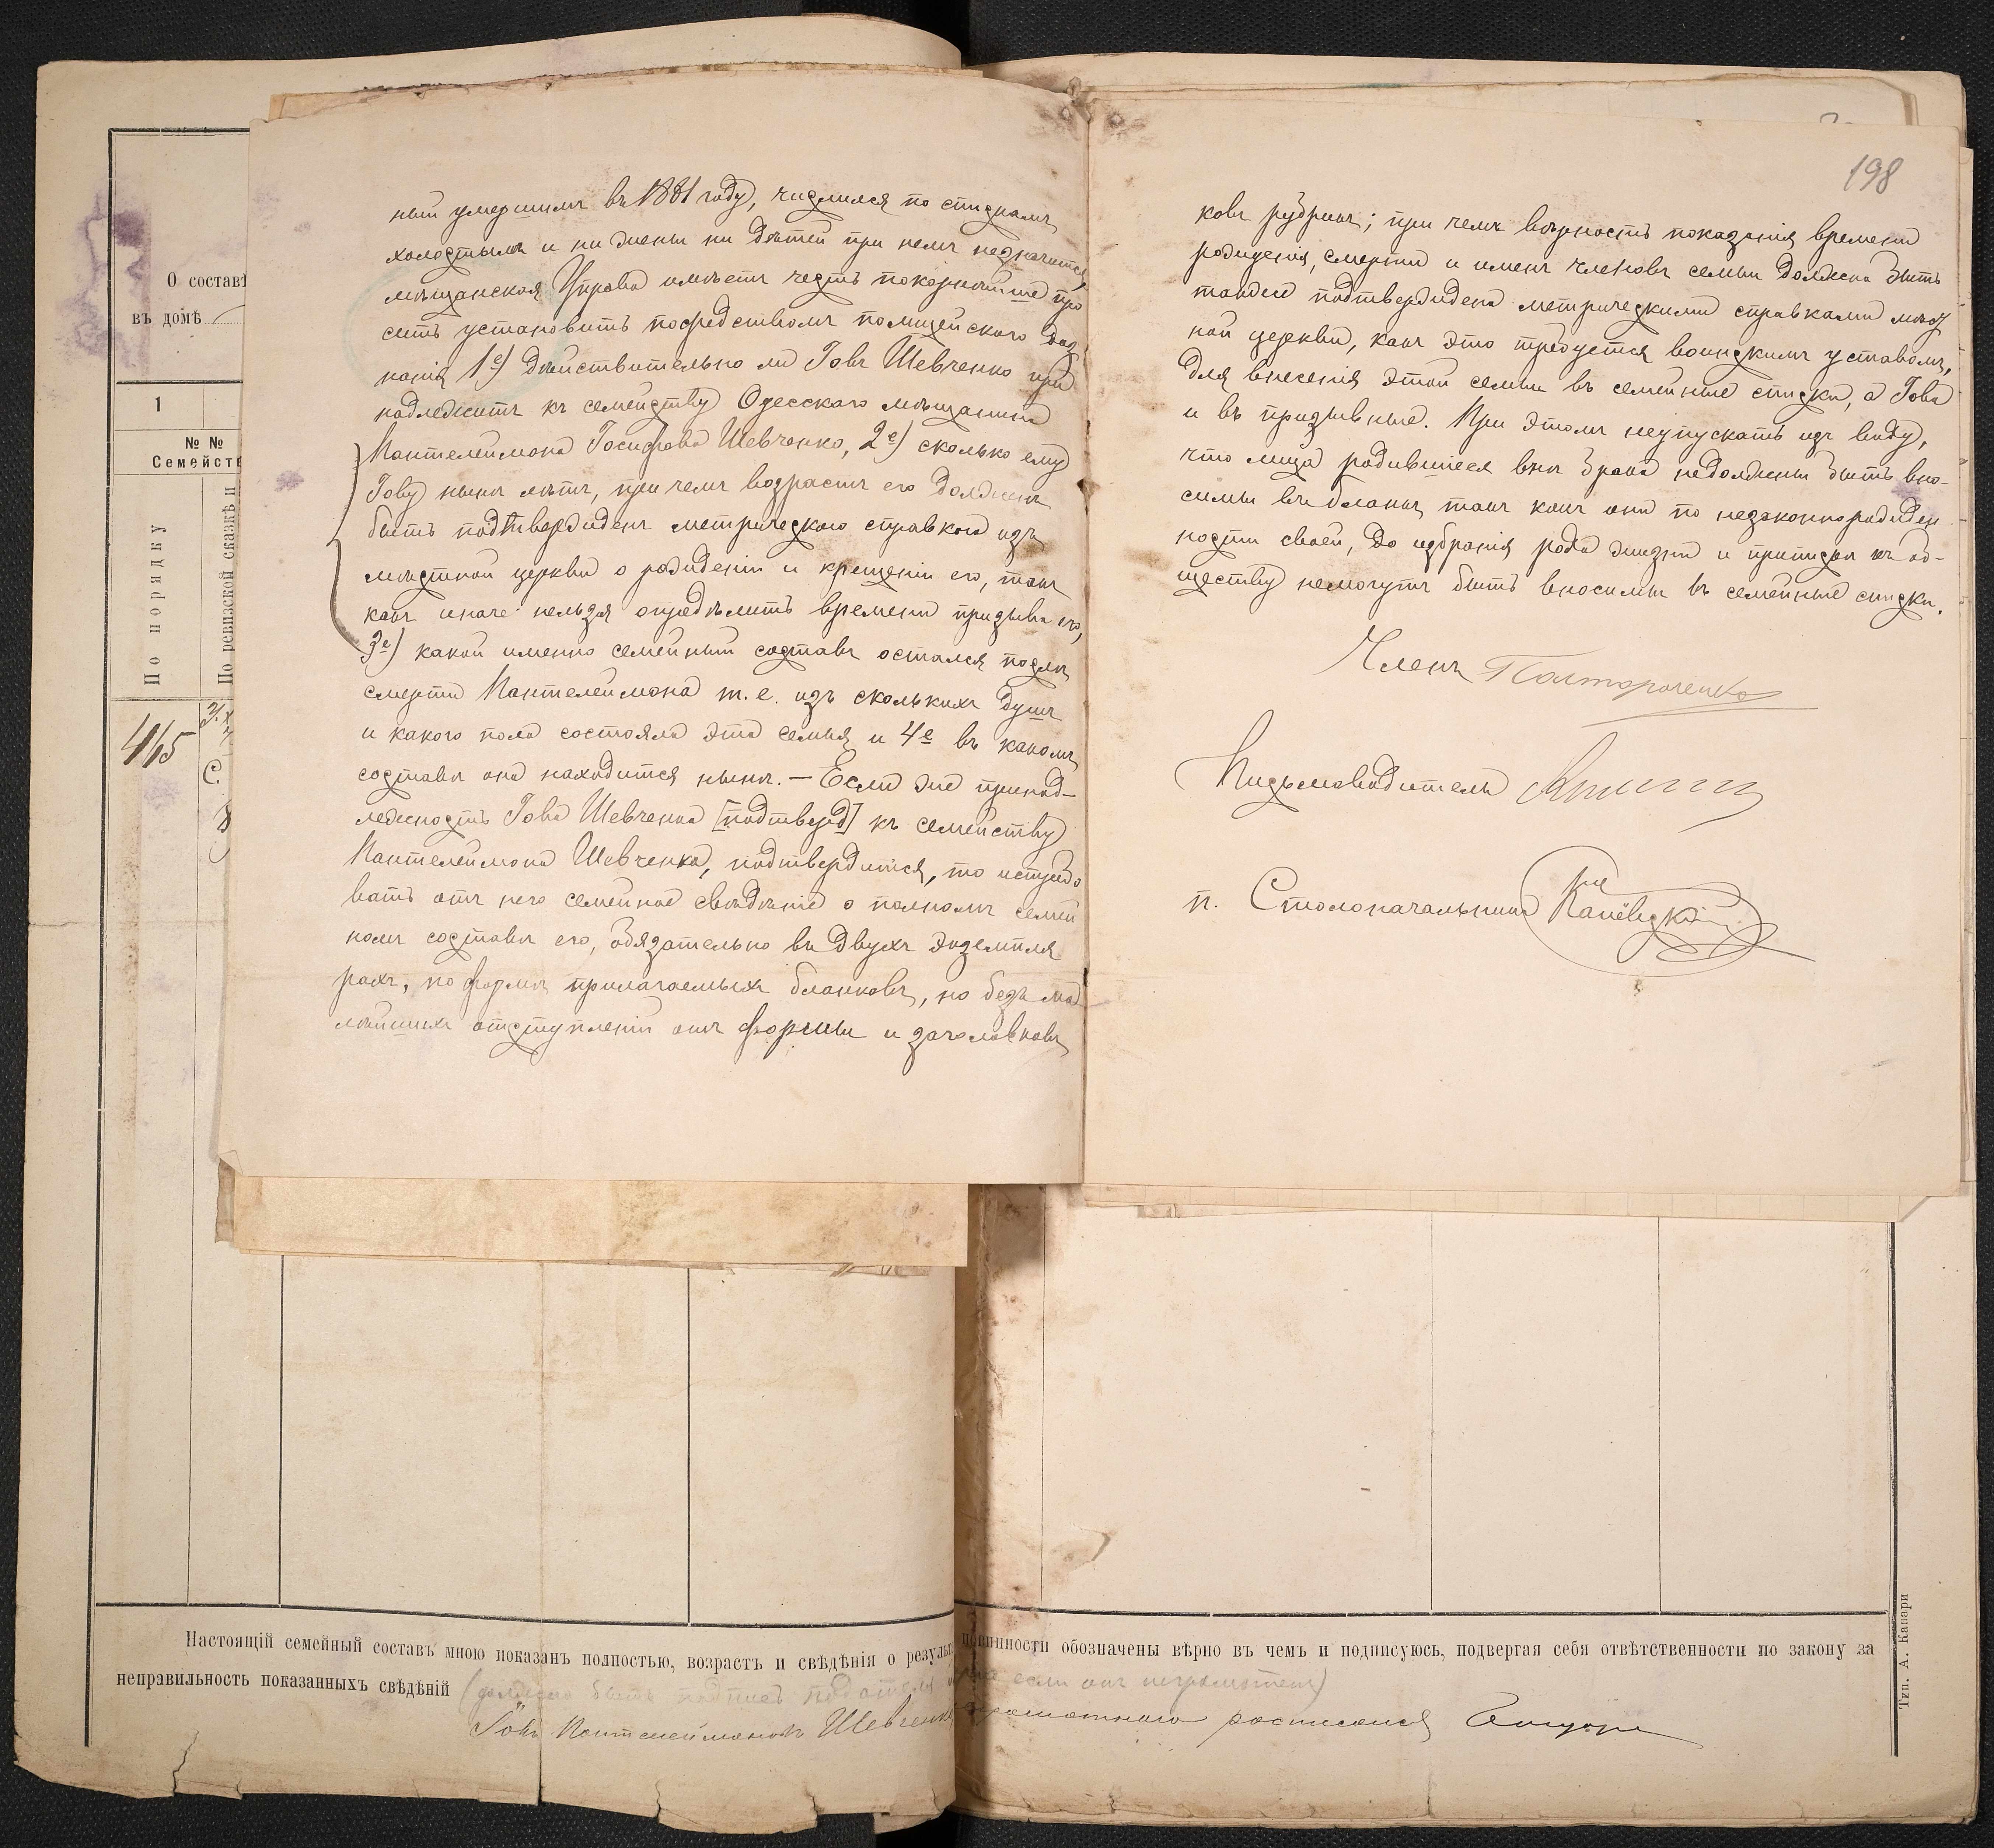 О составѣ
въ домѣ
1
№ №
Семейств
По порядку
По ревизской сказкѣ и
465
ный умершимъ въ 1881 году, числился по спискамъ
холостымъ и ни жены ни дѣтей при немъ незначится,
мѣщанская Управа имѣетъ честь покорнѣйше про
сить установить посредствомъ полицейскаго доз
нанія 1е) дѣйствительно ли Іовъ Шевченко при
надлежитъ къ семейству Одесскаго мѣщанина
Пантелеймона Іосифова Шевченко, 2е) сколько ему
Іову нынѣ лѣтъ, при чемъ возрастъ его долженъ
быть подтвержденъ метрическою справкою изъ
мѣстной церкви о рожденіи и крещеніи его, такъ
какъ иначе нельзя опредѣлить времени призыва его,
3е) какой именно семейный составъ остался послѣ
смерти Пантелеймона т. е. изъ сколькихъ душъ
и какого пола состояла эта семья и 4е въ какомъ
составѣ она находится нынѣ. — Если же принад-
лежность Іова Шевченка [подтверд] къ семейству
Пантелеймона Шевченка, подтвердится, то истребо
вать отъ него семейное свѣдѣніе о полномъ семей
номъ составѣ его, обязательно въ двухъ экземпля
рахъ, по формѣ прилагаемыхъ бланковъ, но безъ мал
лѣйшихъ отступленій отъ формы и заголовковъ
198
ковъ рубрикъ; при чемъ вѣрность показанія времени
рожденія, смерти и именъ членовъ семьи должна быть
также подтверждена метрическими справками мѣст
ной церкви, какъ это требуется воинскимъ уставомъ,
для внесенія этой семьи въ семейные списки, а Іова
и въ призывные. При этомъ неупускать изъ виду,
что лица родившіеся внѣ брака недолжны быть вно-
симы въ бланкъ такъ какъ они по незаконнорожден
ности своей, до избранія рода жизни и приписки къ об-
ществу немогутъ быть вносимы въ семейные списки.
Членъ
Письмоводитель
п. Столоначальника
Настоящій семейный составъ мною показанъ полностью, возрастъ и свѣдѣнія о резуль повинности обозначены вѣрно въ чемъ и подписуюсь, подвергая себя отвѣтственности по закону за
неправильность показанныхъ свѣдѣній (должно быть подпись подателя если онъ неграмотенъ)
Іовъ Пантелеймоновъ Шевченко росписался
Тип. А. Канари